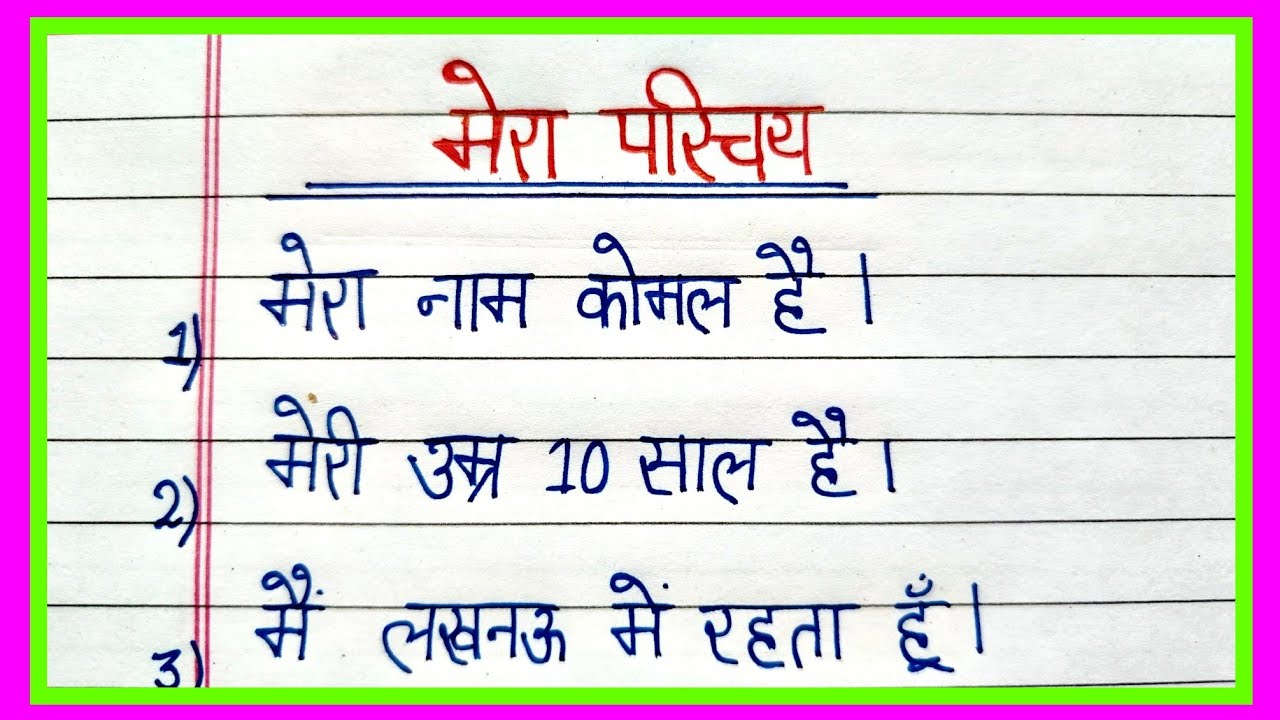 मेरा परिचय
1) मेरा नाम कोमल है।
2) मेरी उम्र 10 साल है।
3) मैं लखनऊ में रहता हूँ।